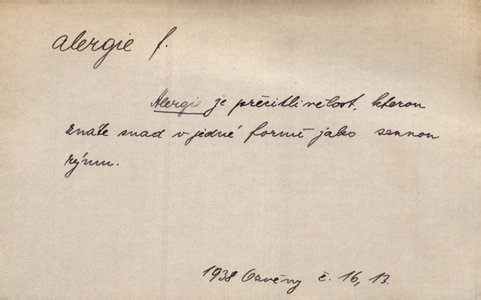 alergie f.
Alergie je přecitlivělost, kterou
znáte snad v jedné formě jako sennou
rýmu.
1938 Ozvěny č. 16, 13.